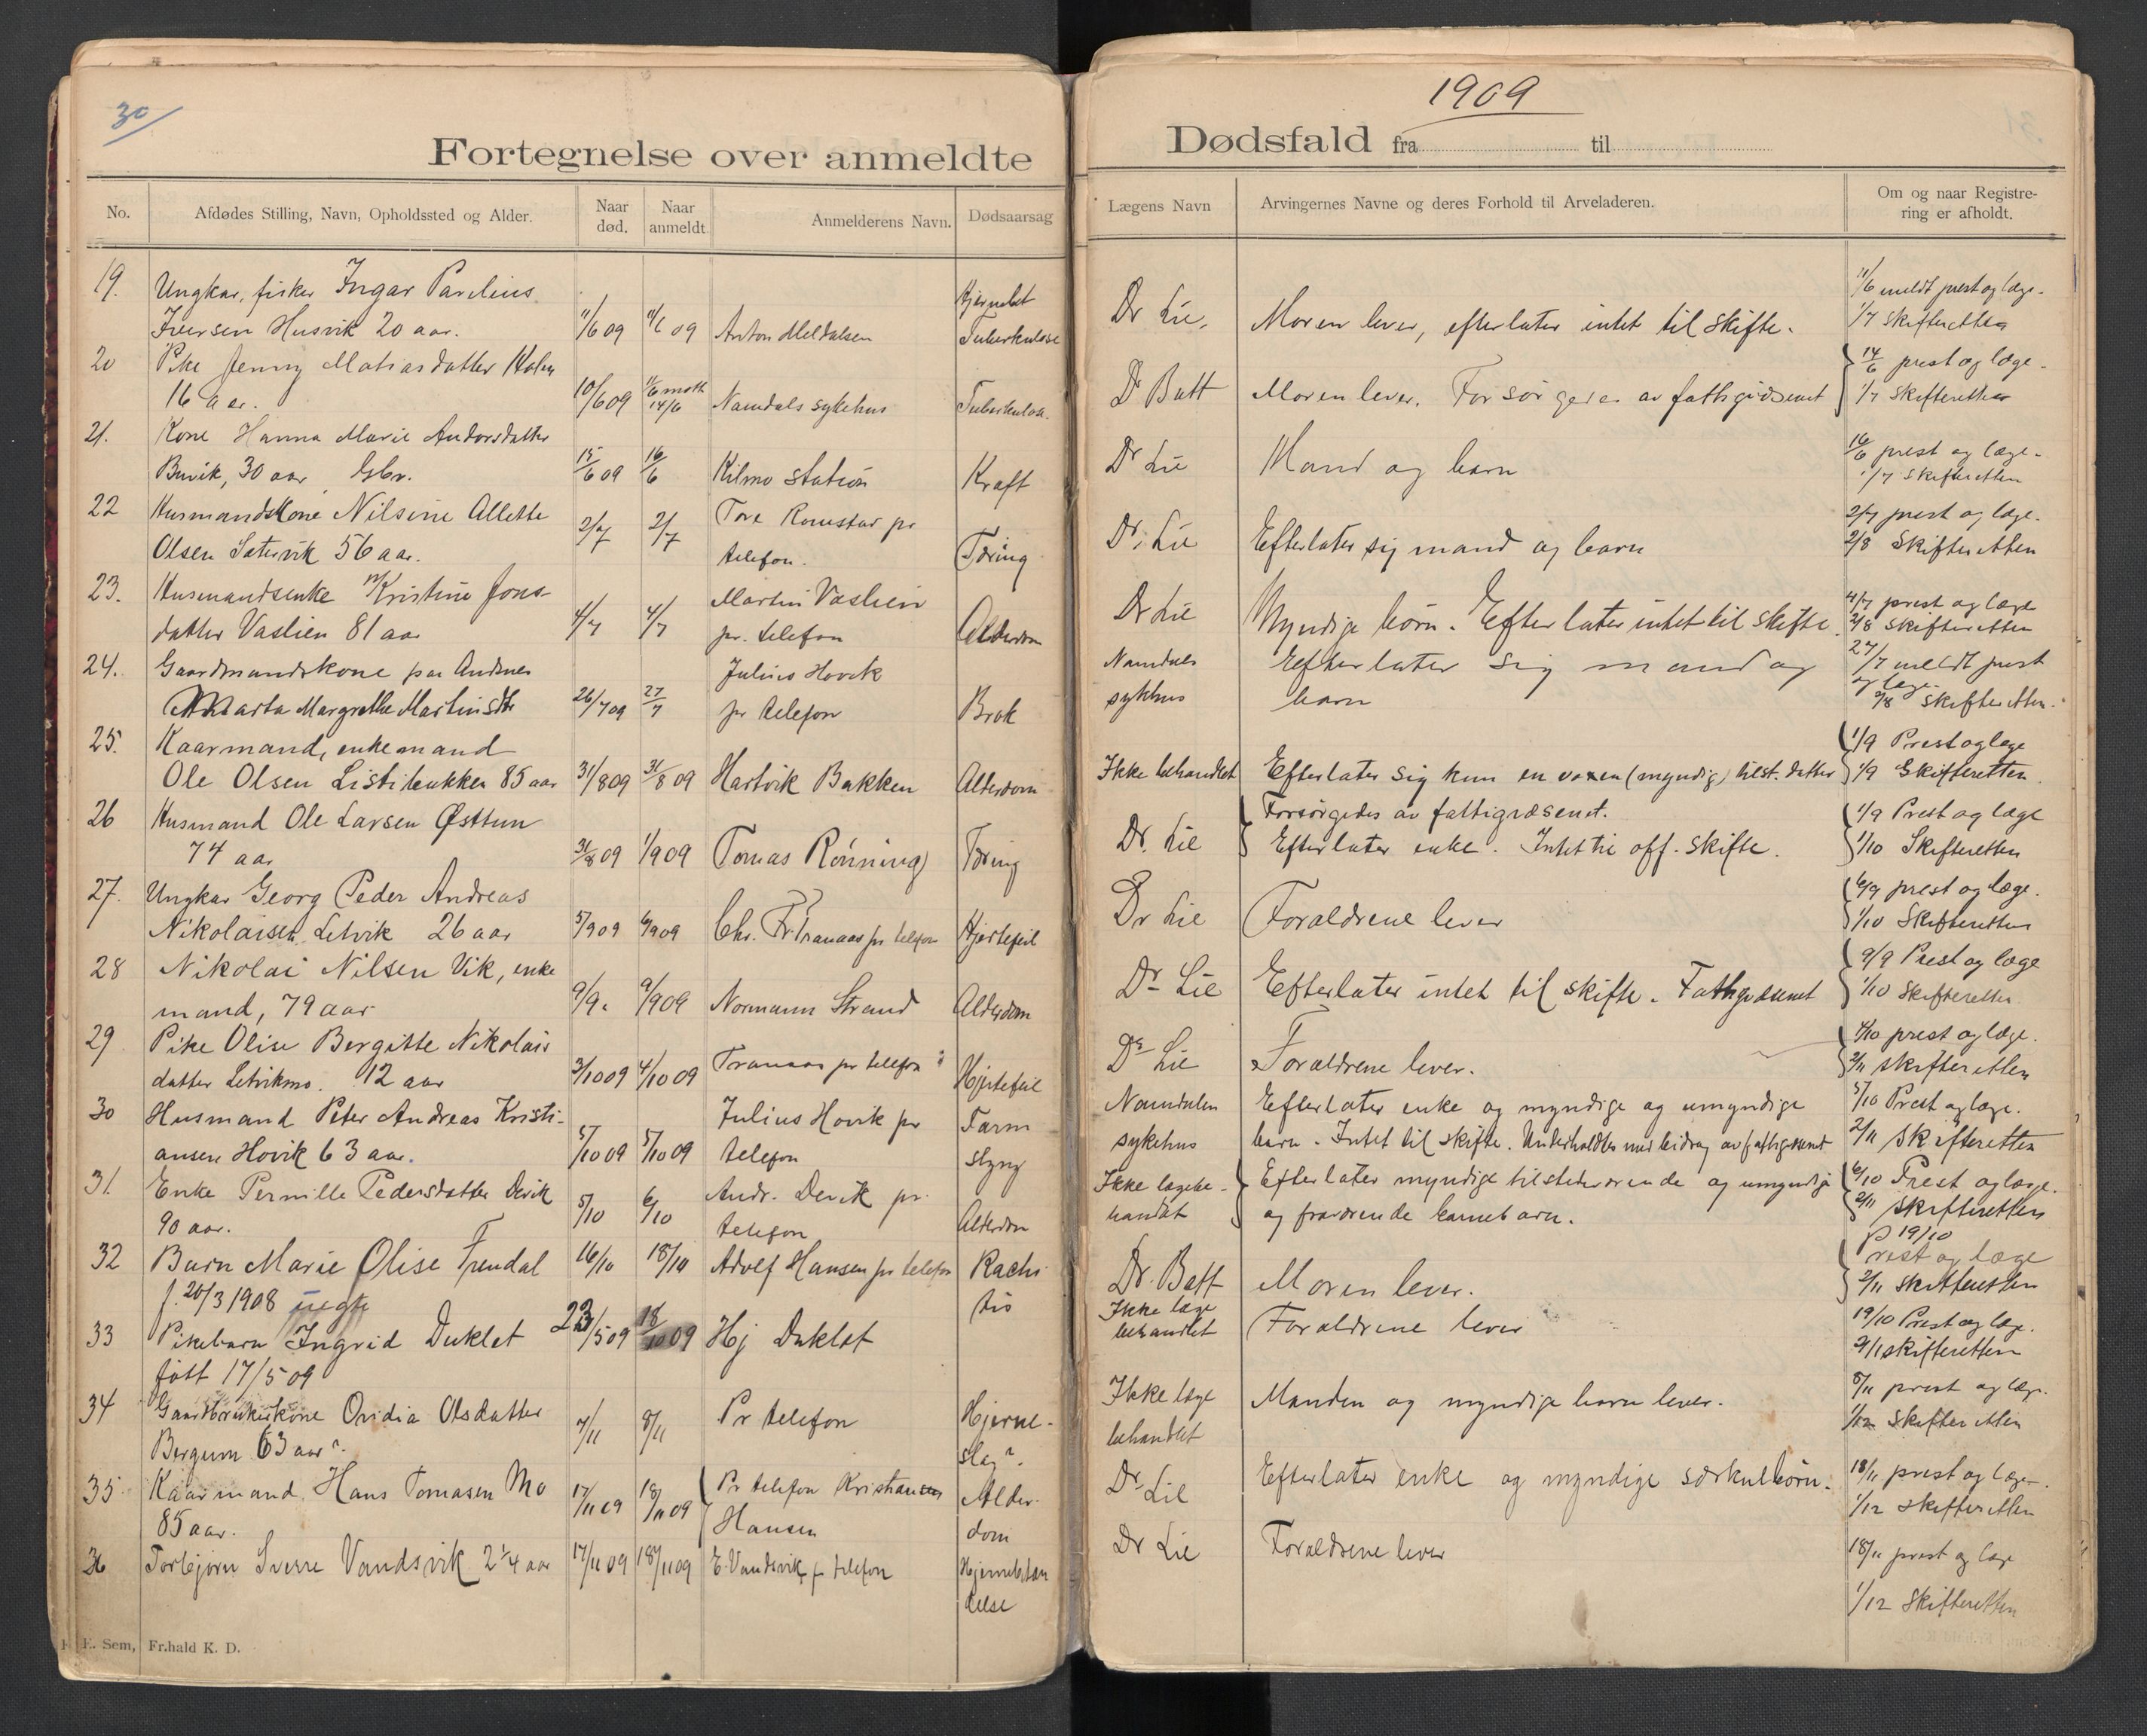 30
Fortegnelse over anmeldte
No.
Afdødes Stilling, Navn, Opholdssted og Alder.
Naar død.
Naar anmeldt
Anmelderens Navn.
Dødsaarsag
19. Ungkar, fisker Ingar Parelius
Iversen Husvik 20 aar. 11/6 09 11/6 09 Anton Meldalsen Tuberkuløse
20 Pike Jenny Matiasdatter Holm
16 aar. 10/6 09 14/6 Namdals sykehus Tuberkulose
21. Kone Hanna Marie Andorsdatter
Buvik, 30 aar Gbr. 15/6 09 16/6 Kilmo station Kræft
22 Husmandskone Nilsine Allette Tore Romstad pr
Olsen Setervik 56 aar. 2/7 2/7 telefon. Tæring
23. Husmandsenke Kristine Jons- Martin Vaslien
datter Vaslien 81 aar 4/7 4/7 pr. telefon Alderdom
24. Gaardmandskone paa Andsnes Julius Hovik
Marta Margrethe Martinsdtr 26/7 09 27/7 pr telefon Brok
25. Kaarmand, enkemand
Ole Olsen Listibakken 85 aar 31/8 09 31/8 09 Hartvik Bakken Alderdom
26 Husmand Ole Larsen Østtun
74 aar 31/8 09 1/9 09 Tomas Rønning Tæring
27. Ungkar Georg Peder Andreas
Nikolaisen Letvik 26 aar 5/9 09 6/9 09 Chr. Fr. Tranaas pr telefon Hjertefeil
28 Nikolai Nilsen Vik, enke
mand, 79 aar 9/9. 9/9 09 Normann Strand Alderdom
29 Pike Olise Bergitte Nikolais
datter Letvikmo. 12 aar 3/10 09 4/10 09 Tranaas pr telefon Hjertefeil
30 Husmand Peter Andreas Kristi- Julius Hovik pr Tarm
ansen Hovik 63 aar. 5/10 09 5/10 09 telefon slyng
31. Enke Pernille Pedersdatter Devik Andr. Devik pr.
90 aar. 5/10 6/10 telefon Alderdom
32 Barn Marie Olise Frendal 16/10 18/10 Adolf Hansen pr telefon Rachi
f. 20/3 1908 uegte tis
33 Pikebarn Ingrid Duklet 23/5 09 18/10 09 Hj Duklet
født 17/5 09
34 Gaardbrukerkone Ovidia Olsdatter Pr telefon Hjerne-
Bergum 63 aar. 7/11 8/11 slag.
35 Kaarmand Hans Tomasen Mo 17/11 09 18/11 09 Pr telefon Kristian Alder-
85 aar. Hansen dom
36 Torbjørn Sverre Vandsvik 2 1/4 aar 17/11 09 18/11 09 E. Vandsvik pr telefon Hjernebetæn
delse
E. Sem, Fr.hald K. D.
1909
Dødsfald fra til
Lægens Navn
Arvingernes Navne og deres Forhold til Arveladeren.
Om og naar Registre-
ring er afholdt.
11/6 meldt prest og læge.
Dr Lie, Moren lever, efterlater intet til skifte. 1/7 skifteretten
14/6 prest og læge.
Dr Batt Moren lever. Forsørgedes av fattigvæsenet 1/7 skifteretten
16/6 prest og læge.
Dr Lie Mand og barn 1/7 skifteretten
2/7 prest og læge.
Dr. Lie Efterlater sig mand og barn 2/8 Skifteretten
4/7 prest og læge
Dr Lie Myndige børn. Efterlater intet til skifte. 2/8 skifteretten
Namdals Efterlater sig mand og 27/7 meldt prest
sykhus barn og læge. 2/8 skifteretten.
1/9 Prest og læge
Ikke behandlet Efterlater sig kun en voxen (myndig) tilst. datter 1/9 Skifteretten
Forsørgedes av fattigvæsenet. 1/9 Prest og læge
Dr. Lie Efterlater enke. Intet til off. skifte. 1/10 Skifteretten
6/9 prest og læge.
Dr Lie Foraldrene lever 1/10 Skifteretten
9/9 Prest og læge
Dr Lie Efterlater intet til skifte. Fattigvæsenet 1/10 Skifteretten
4/10 prest og læge.
Dr Lie Foraldrene lever. 2/11 skifteretten
Namdalen Efterlater enke og myndige og umyndige 5/10 Prest og læge.
sykehus barn. Intet til skifte. Underholdtes med bidrag av fattigvæsenet 2/11 Skifteretten
Ikke lægebe- Efterlater myndige tilstedeværende og umyndige 6/10 Prest og læge.
handlet og fraværende barnebarn. 2/11 skifteretten
19/10
Prest og læge
Dr. Batt Moren lever. 2/11 skifteretten
Ikke læge Foraldrene lever 19/10 Prest og læge.
behandlet 2/11 skifteretten
Ikke læge Manden og myndige barn lever. 8/11 prest og læge.
behandlet 1/12 skifteretten
Dr Lie Efterlater enke og myndige særkulbørn. 18/11 prest og læge.
1/12 skifteretten
Dr Lie Foraldrene lever 18/11 prest og læge
1/12 Skifteretten